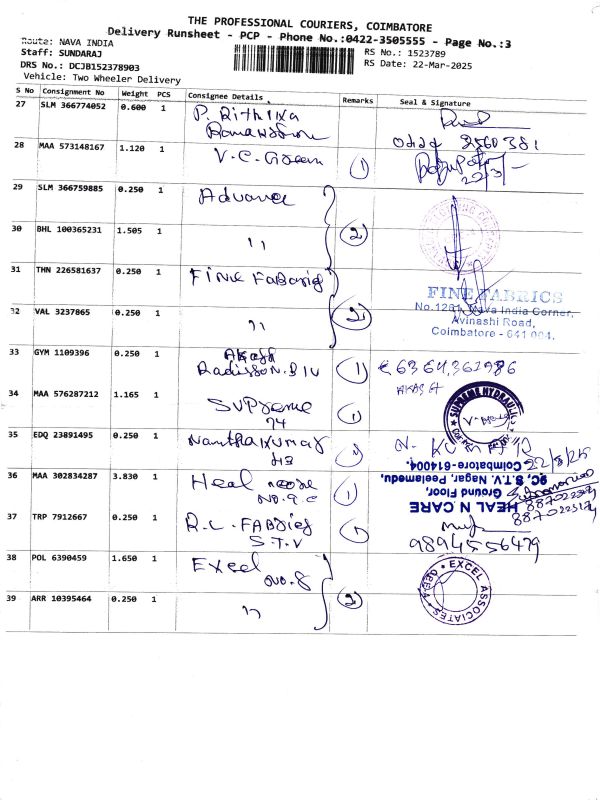 THE PROFESSIONAL COURIERS, COIMBATORE
Delivery Runsheet - PCP - Phone No.:0422-3505555 - Page No.:3
Route: NAVA INDIA
Staff: SUNDARAJ
DRS No.: DCJB152378903
Vehicle: Two Wheeler Delivery
RS No.: 1523789
RS Date: 22-Mar-2025
S No Consignment No Weight PCS Consignee Details Remarks Seal & Signature
27 SLM 366774052 0.600 1 P. Rithika
28 MAA 573148167 1.120 1 V.C. 1
29 SLM 366759885 0.250 1 Advance
30 BHL 100365231 1.505 1 11 2
31 THN 226581637 0.250 1 Fine Fabrics
FINE FABRICS
No.1261, Nava India Corner,
Avinashi Road,
Coimbatore - 641 004.
32 VAL 3237865 0.250 1 11 2
33 GYM 1109396 0.250 1 Akash
Radisson Blu 1
AKASH
34 MAA 576287212 1.165 1 Supreme
74 1
SUPREME HYDRAULICS
35 EDQ 23891495 0.250 1 Nanthakumar
N. KUMAR
22/3/25
36 MAA 302834287 3.830 1 Heal
No. 9.C 1
HEAL N CARE
Ground Floor,
9C, S.T.V. Nagar, Peelamedu,
Coimbatore-614004.
8870223179
37 TRP 7912667 0.250 1 R.L. Fabrics
S.T.V 1
9894556479
38 POL 6390459 1.650 1 Excel
No. 8
39 ARR 10395464 0.250 1 11 2
EXCEL ASSOCIATES